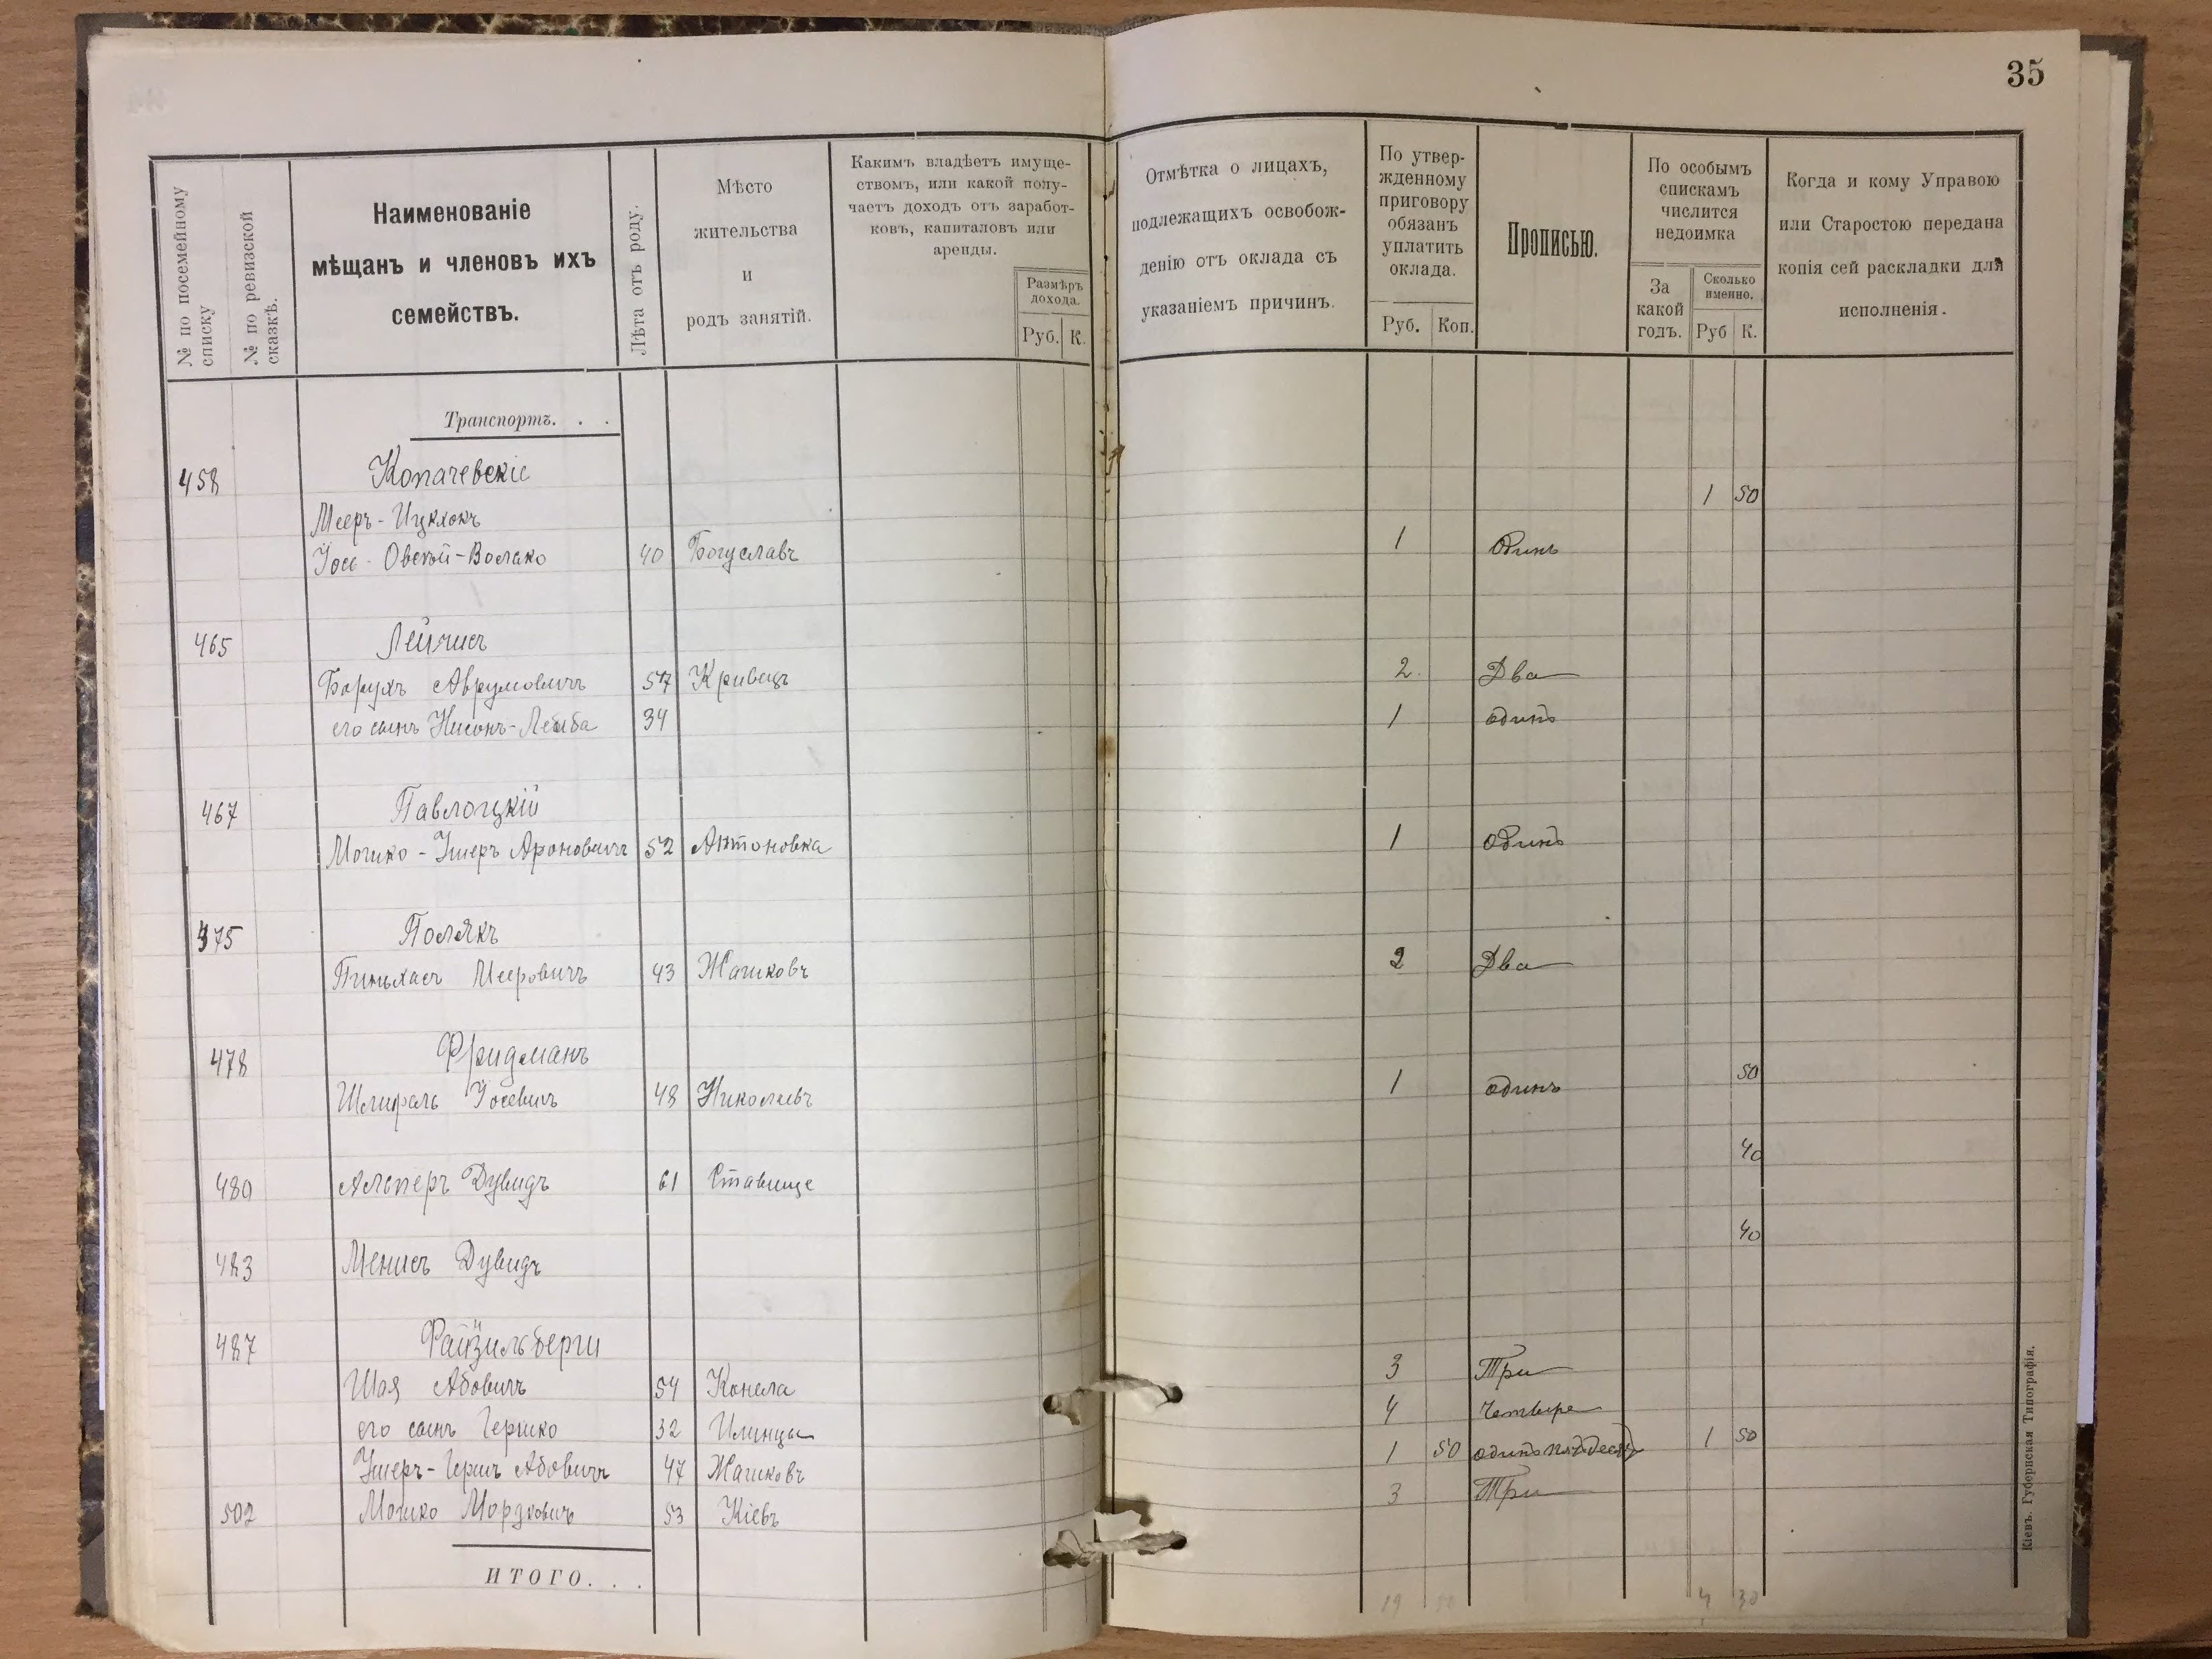 35
№ по посемейному списку
№ по ревизской сказкѣ.
Наименованіе
мѣщанъ и членовъ ихъ
семействъ.
Лѣта отъ роду.
Мѣсто
жительства
и
родъ занятій.
Какимъ владѣетъ имуще-
ствомъ, или какой полу-
чаетъ доходъ отъ заработ-
ковъ, капиталовъ или
аренды.
Размѣръ
дохода.
Руб. К.
Отмѣтка о лицахъ,
подлежащихъ освобож-
денію отъ оклада съ
указаніемъ причинъ.
По утвер-
жденному
приговору
обязанъ
уплатить
оклада.
Руб. Коп.
Прописью.
По особымъ
спискамъ
числится
недоимка
За
какой
годъ.
Сколько
именно.
Руб К.
Когда и кому Управою
или Старостою передана
копія сей раскладки для
исполненія.
Транспортъ. . .
458 Копачевскіе 1 50
Мееръ-Ицхокъ
Іось-Овсей-Волько 40 Богуславъ 1 Одинъ
465 Лейчисъ
Борухъ Аврумовичъ 57 Кривецъ 2. Два
его сынъ Нисонъ-Лейба 34 1 один
467 Павлоцкій
Мошко-Ушеръ Ароновичъ 52 Антоновка 1 Один
475 Полякъ
Пинхасъ Мееровичъ 43 Жашковъ 2 Два
478 Фридманъ 50
Іосевичъ 48 Николаевъ 1 одинъ
40
480 Альперъ Дувидъ 61 Ставище
40
483 Менисъ Дувидъ
487 Файзильберги
Шая Абовичъ 54 Конела 3 Три
его сынъ Гершко 32 Илинцы 4 Четыре
Ушеръ-Гершъ Абовичъ 47 Жашковъ 1 50 один пятьдесят 1 50
502 Мошко Мордковичъ 53 Кіевъ 3 Три
ИТОГО. . .
19 50 4 30
Кіевъ. Губернская Типографія.